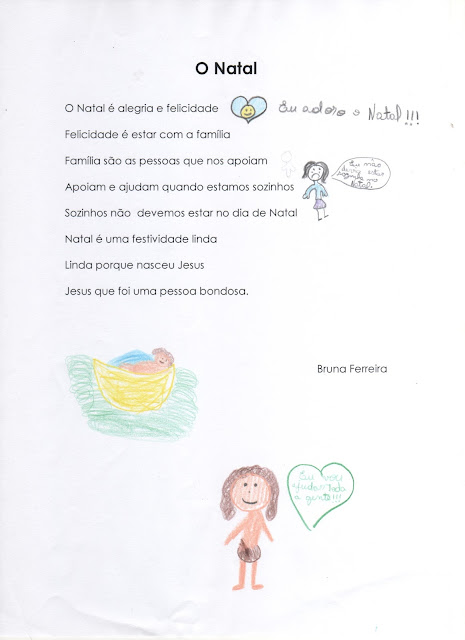 O Natal
O Natal é alegria e felicidade
Eu adoro o Natal!!!
Felicidade é estar com a família
Família são as pessoas que nos apoiam
Apoiam e ajudam quando estamos sozinhos
Eu não
devia estar
sozinha no
Natal.
Sozinhos não devemos estar no dia de Natal
Natal é uma festividade linda
Linda porque nasceu Jesus
Jesus que foi uma pessoa bondosa.
Bruna Ferreira
Eu vou
ajudar toda
a gente!!!